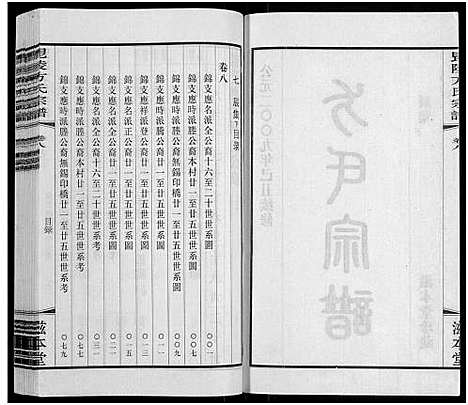 毘陵方氏宗譜
卷八
方氏宗譜
公元二〇〇九年己丑
滋本堂
毘陵方氏宗譜
卷八
目錄
滋本堂
卷八
七 辰集下目录
錦支應名派全公裔十六至二十世世系圖 〇〇一
錦支應時派勝公裔本村廿一至廿五世世系圖 〇〇七
錦支應時派勝公裔無錫印橋廿一至廿五世世系圖 〇〇九
錦支應祥派登公裔廿一至廿五世世系圖 〇一一
錦支應名派正公裔廿一至廿五世世系圖 〇一五
錦支應名派全公裔十六至二十世世系考 〇三一
錦支應時派勝公裔本村廿一至廿五世世系考 〇七七
錦支應時派勝公裔無錫印橋廿一至廿五世世系考 〇七九